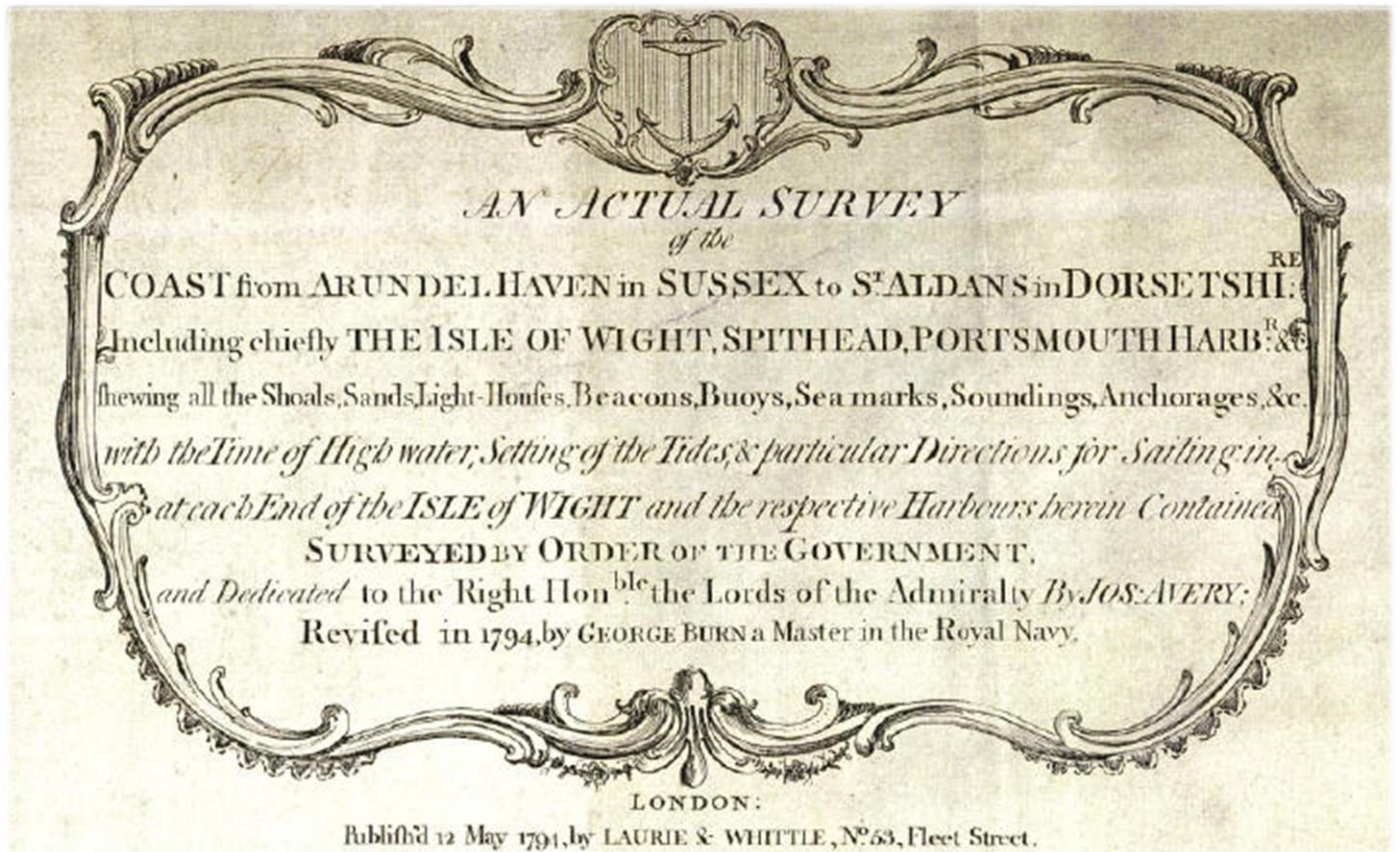 AN ACTUAL SURVEY
of the
COAST from ARUNDEL HAVEN in SUSSEX to Sᵀ. ALDANS in DORSETSHI:ᴿᴱ
Including chiefly THE ISLE OF WIGHT, SPITHEAD, PORTSMOUTH HARBᴿ: &c
ſhewing all the Shoals, Sands, Light-Houſes, Beacons, Buoys, Sea marks, Soundings, Anchorages, &c.
with the Time of High water, Setting of the Tides, & particular Directions for Sailing in,
at each End of the ISLE of WIGHT and the respective Harbours herein Contained
SURVEYED BY ORDER OF THE GOVERNMENT,
and Dedicated to the Right Honᵇˡᵉ. the Lords of the Admiralty By JOS: AVERY;
Reviſed in 1794, by GEORGE BURN a Master in the Royal Navy.
LONDON:
Publiſh'd 12 May 1794, by LAURIE & WHITTLE, Nº. 53, Fleet Street.